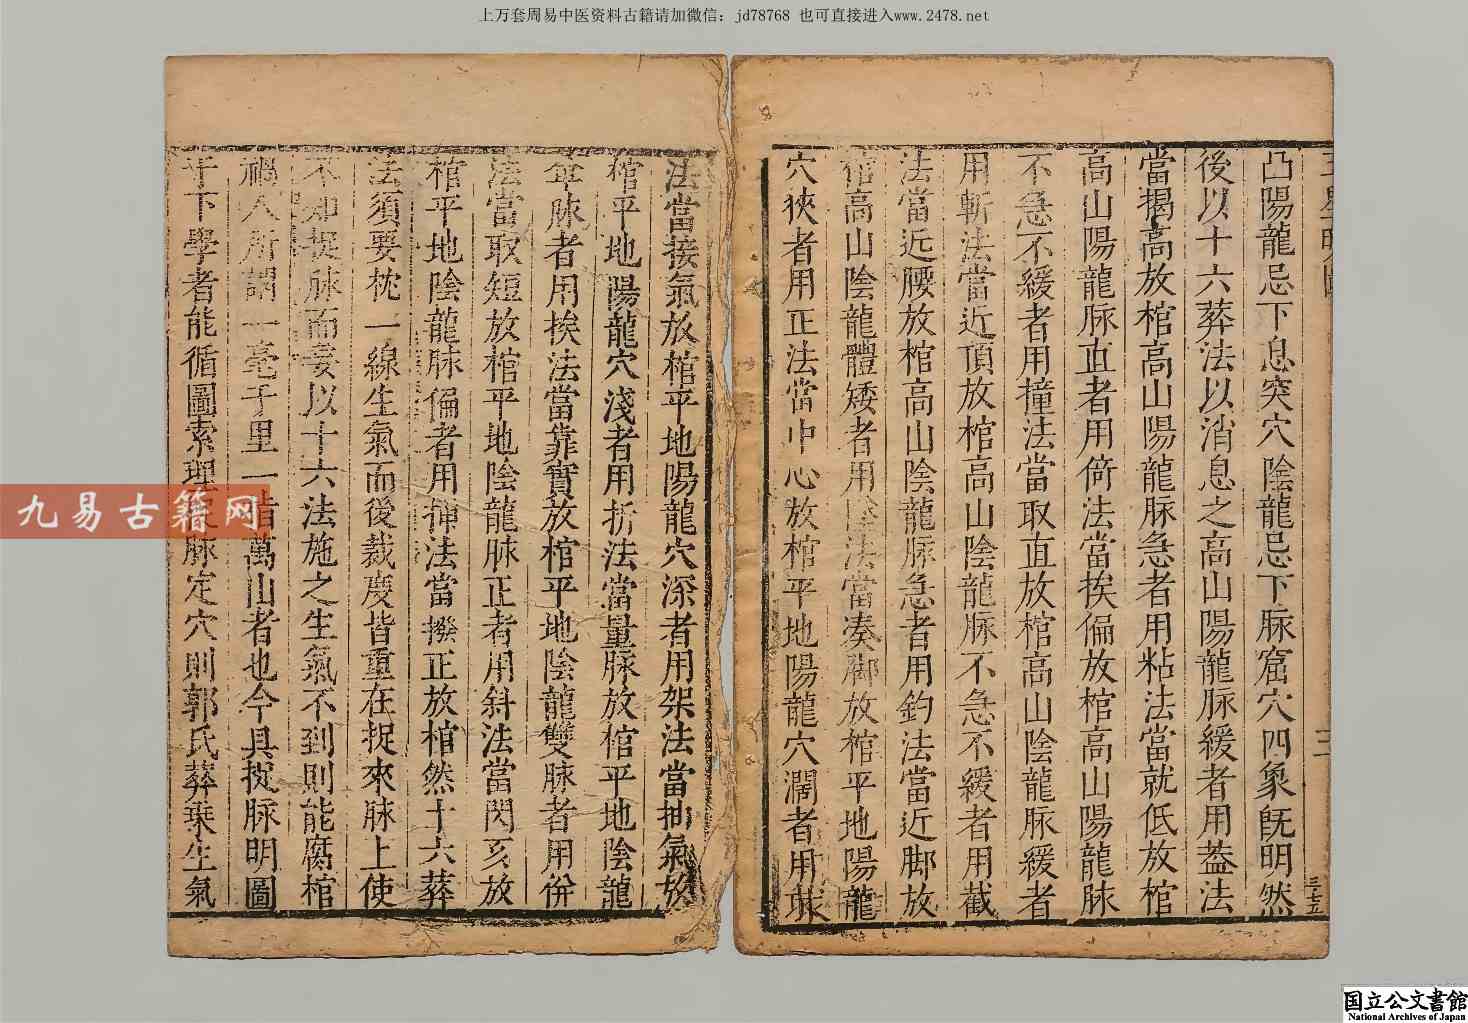 上万套周易中医资料古籍请加微信：jd78768 也可直接进入www.2478.net
凸陽龍忌下息突穴陰龍忌下脉窟穴四象既明然
後以十六葬法以消息之高山陽龍脉緩者用葢法
當揭高放棺高山陽龍脉急者用粘法當就低放棺
高山陽龍脉直者用倚法當挨偏放棺高山陽龍脉
不急不緩者用撞法當取直放棺高山陰龍脉緩者
用斬法當近頂放棺高山陰龍脉不急不緩者用截
法當近腰放棺高山陰龍脉急者用釣法當近脚放
棺高山陰龍體矮者用法當凑脚放棺平地陽龍
穴狹者用正法當中心放棺平地陽龍穴濶者用球
法當接氣放棺平地陽龍穴深者用架法當抽氣放
棺平地陽龍穴淺者用折法當量脉放棺平地陰龍
脉者用挨法當靠實放棺平地陰龍雙脉者用併
法當取短放棺平地陰龍脉正者用斜法當閃亥放
棺平地陰龍脉偏者用揷法當撥正放棺然十六葬
法須要枕一線生氣而後裁度皆重在捉來脉上使
不知捉脉而妄以十六法施之生氣不到則能腐棺
禍人所謂一毫千里一指萬山者也今具捉脉明圖
于下學者能循圖索理脉定穴則郭氏葬乗生氣
三
三七五
九易古籍网
国立公文書館
National Archives of Japan